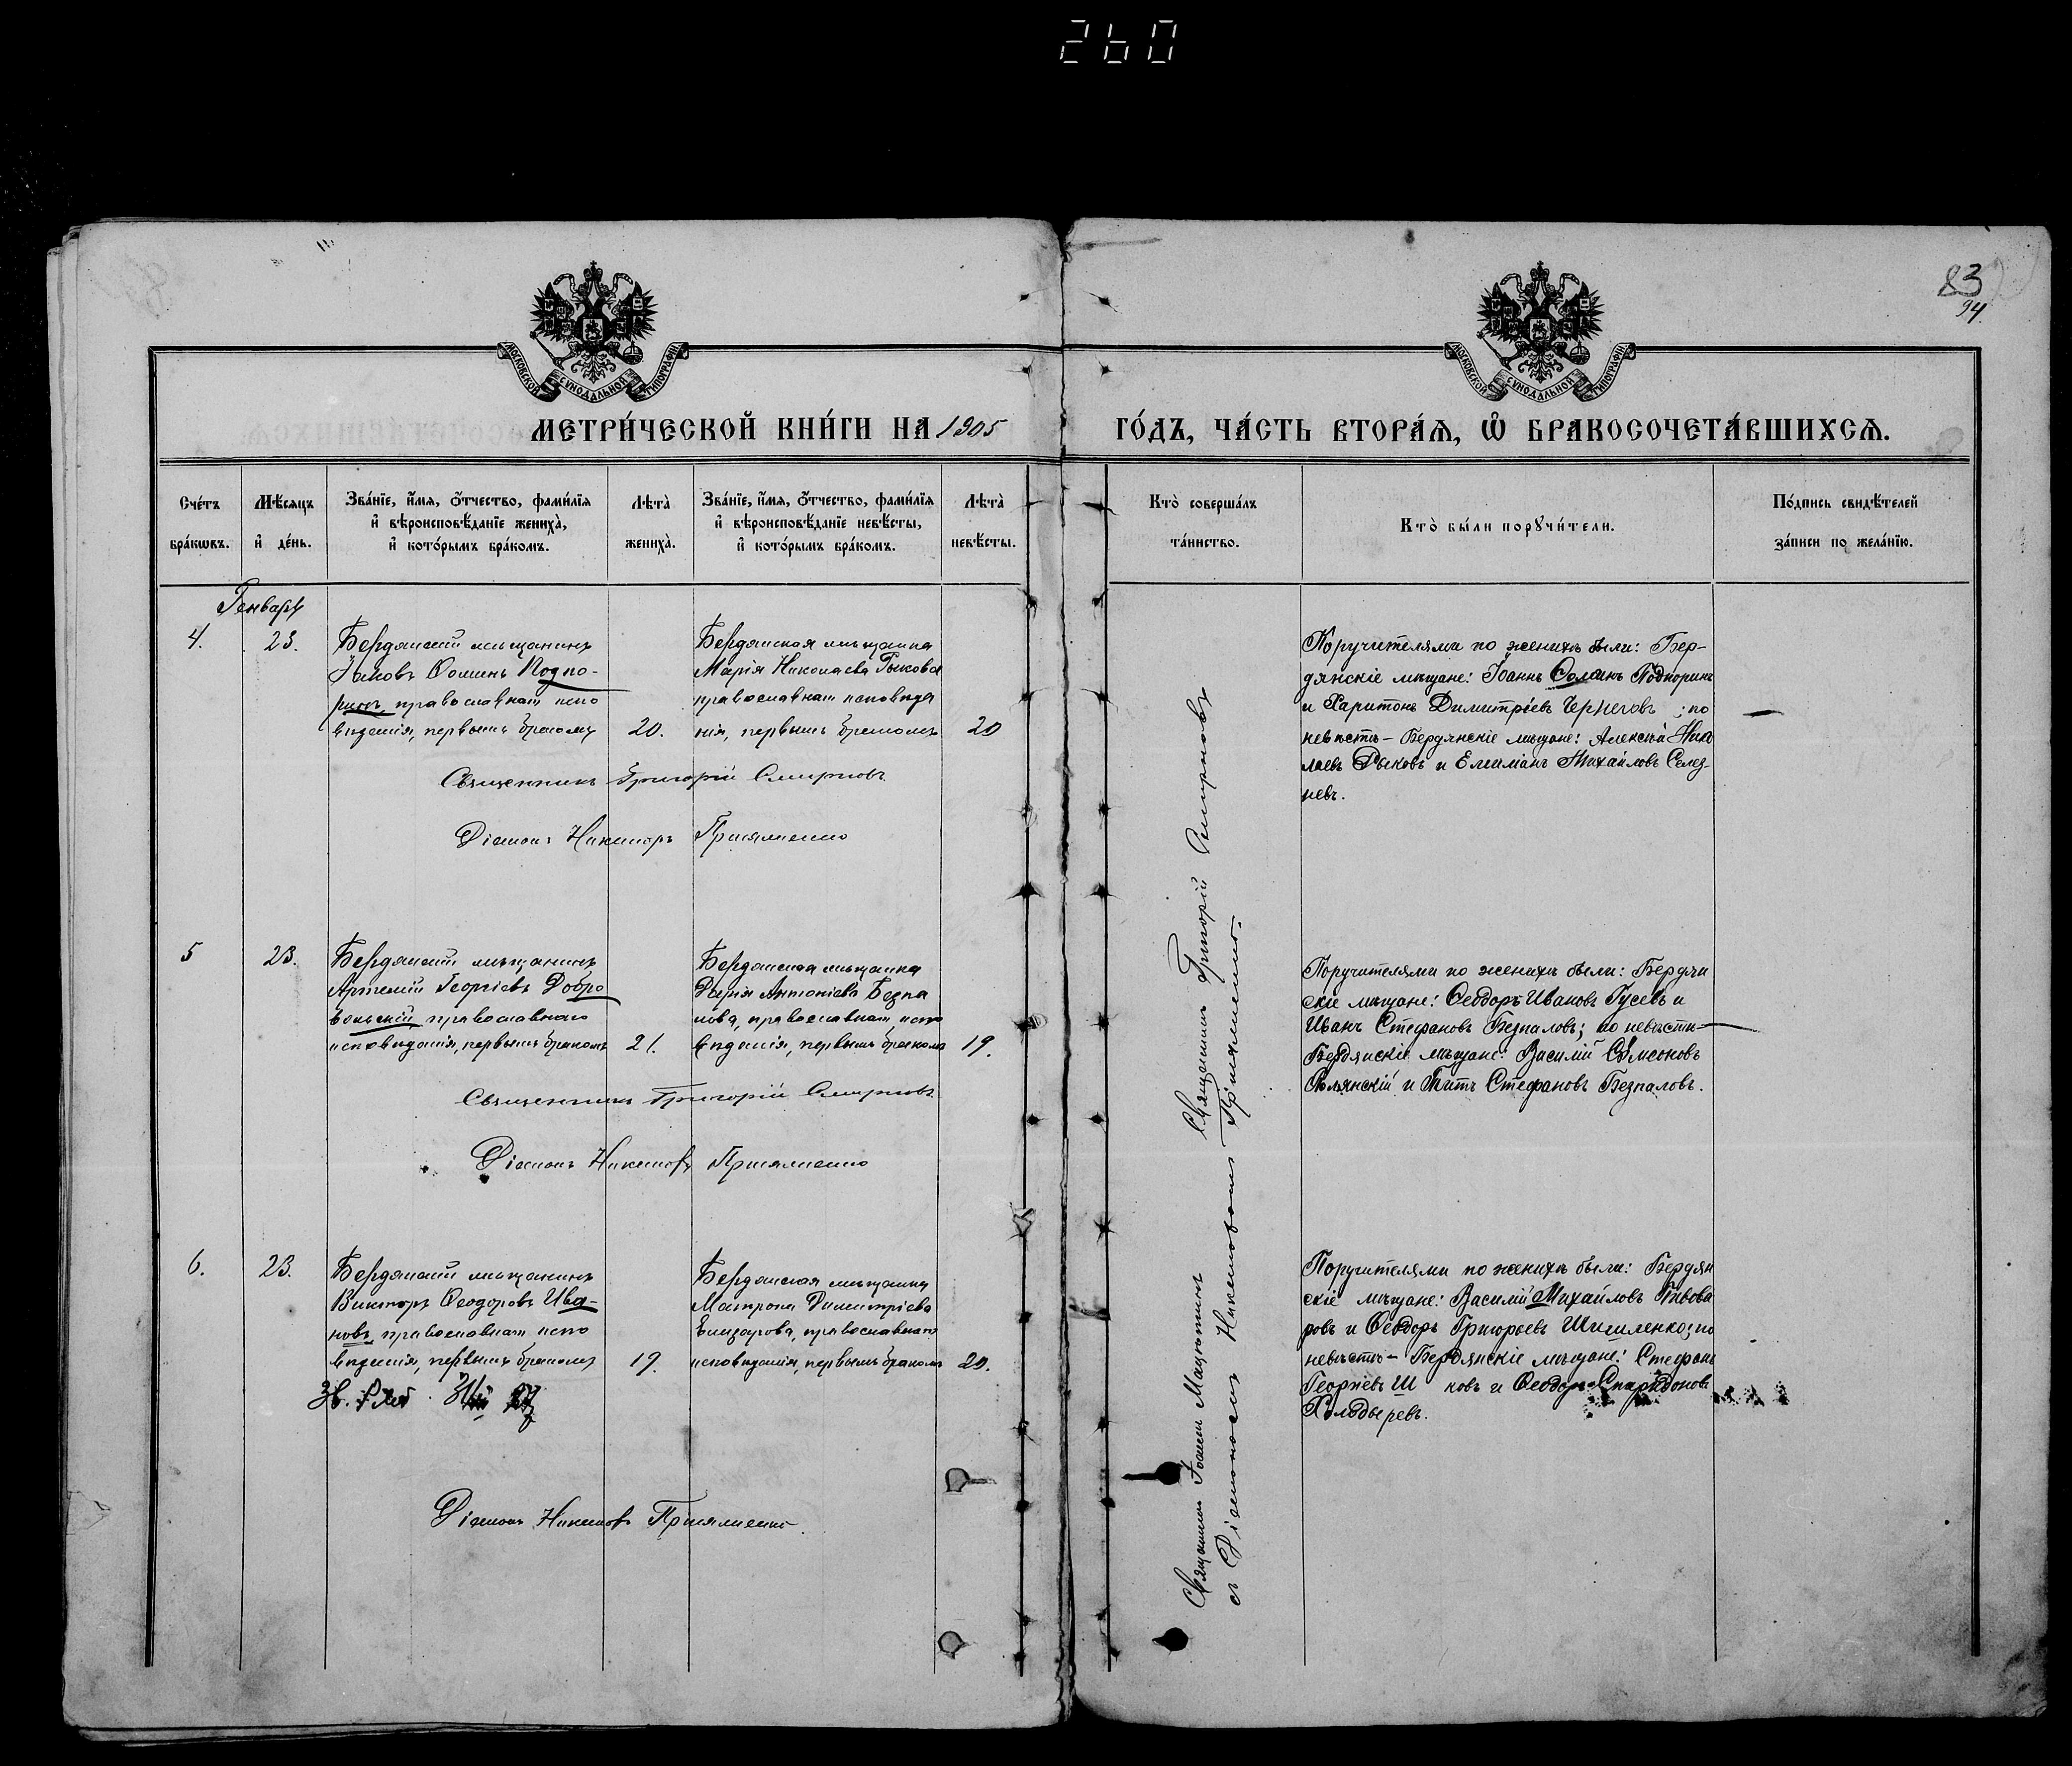 260
83
94.
МОСКОВСКОЙ СѴНОДАЛЬНОЙ ТИПОГРАФІИ
МОСКОВСКОЙ СѴНОДАЛЬНОЙ ТИПОГРАФІИ
МЕТРИ́ЧЕСКОЙ КНИ́ГИ НА 1905 ГО́ДЪ, ЧА́СТЬ ВТОРА́Ѧ, Ѽ БРАКОСОЧЕТА́ВШИХСѦ.
Сче́тъ бра́кѡвъ.
Мѣ́сяцъ и҆ де́нь.
Зва́нїе, и҆́мя, ѻ҆́тчество, фами́лїя и҆ вѣроисповѣ́данїе жениха̀, и҆ кото́рымъ бра́комъ.
Лѣта̀ жениха̀.
Зва́нїе, и҆́мя, ѻ҆́тчество, фами́лїя и҆ вѣроисповѣ́данїе невѣ́сты, и҆ кото́рымъ бра́комъ.
Лѣта̀ невѣ́сты.
Кто̀ соверша́лъ та́инство.
Кто̀ бы́ли порꙋчи́тели.
По́дпись свидѣ́телей за́писи по жела́нїю.
Генварь
4.
23.
Бердянскій мѣщанинъ
Іаковъ Ѳоминъ Подпо-
ринъ, православнаго испо
вѣданія, первымъ бракомъ
20.
Бердянская мѣщанка
Марія Николаева Рыкова
православнаго исповѣда
нія, первымъ бракомъ
20
Поручителями по женихѣ были: Бер-
дянскіе мѣщане: Іоаннъ Ѳоминъ Подпоринъ
и Харитонъ Димитріевъ Черневъ; по
невѣстѣ — Бердянскіе мѣщане: Алексѣй Нико
лаевъ Рыковъ и Емиліанъ Михайловъ Селез-
невъ.
Священникъ Григорій Смирновъ
Діаконъ Никаноръ Присяженко
5
23.
Бердянскій мѣщанинъ
Артемій Георгіевъ Добро
вольскій православнаго
исповѣданія, первымъ бракомъ
21.
Бердянская мѣщанка
Дарія Антоніева Безпа
лова, православнаго испо
вѣданія, первымъ бракомъ
19.
Поручителями по женихѣ были: Бердян
скіе мѣщане: Ѳеодоръ Ивановъ Гусевъ и
Иванъ Стефановъ Безпаловъ; по невѣстѣ —
Бердянскіе мѣщане: Василій Сѵмеоновъ
Полянскій и Титъ Стефановъ Безпаловъ.
Священникъ Григорій Смирновъ
Діаконъ Никаноръ Присяженко
6.
23.
Бердянскій мѣщанинъ
Викторъ Ѳеодоровъ Ива-
новъ, православнаго испо
вѣданія, первымъ бракомъ
19.
Бердянская мѣщанка
Матрона Димитріева
Елизарова, православнаго
исповѣданія, первымъ бракомъ
20.
Поручителями по женихѣ были: Бердян
скіе мѣщане: Василій Михайловъ Пивова
ровъ и Ѳеодоръ Григорьевъ Шишленко; по
невѣстѣ — Бердянскіе мѣщане: Стефанъ
Георгіевъ и Ѳеодоръ Спиридоновъ
Холодыревъ.
Діаконъ Никаноръ Присяженко.
Священникъ Григорій Смирновъ
Священникъ Іоаннъ
съ Діакономъ Присяженко.